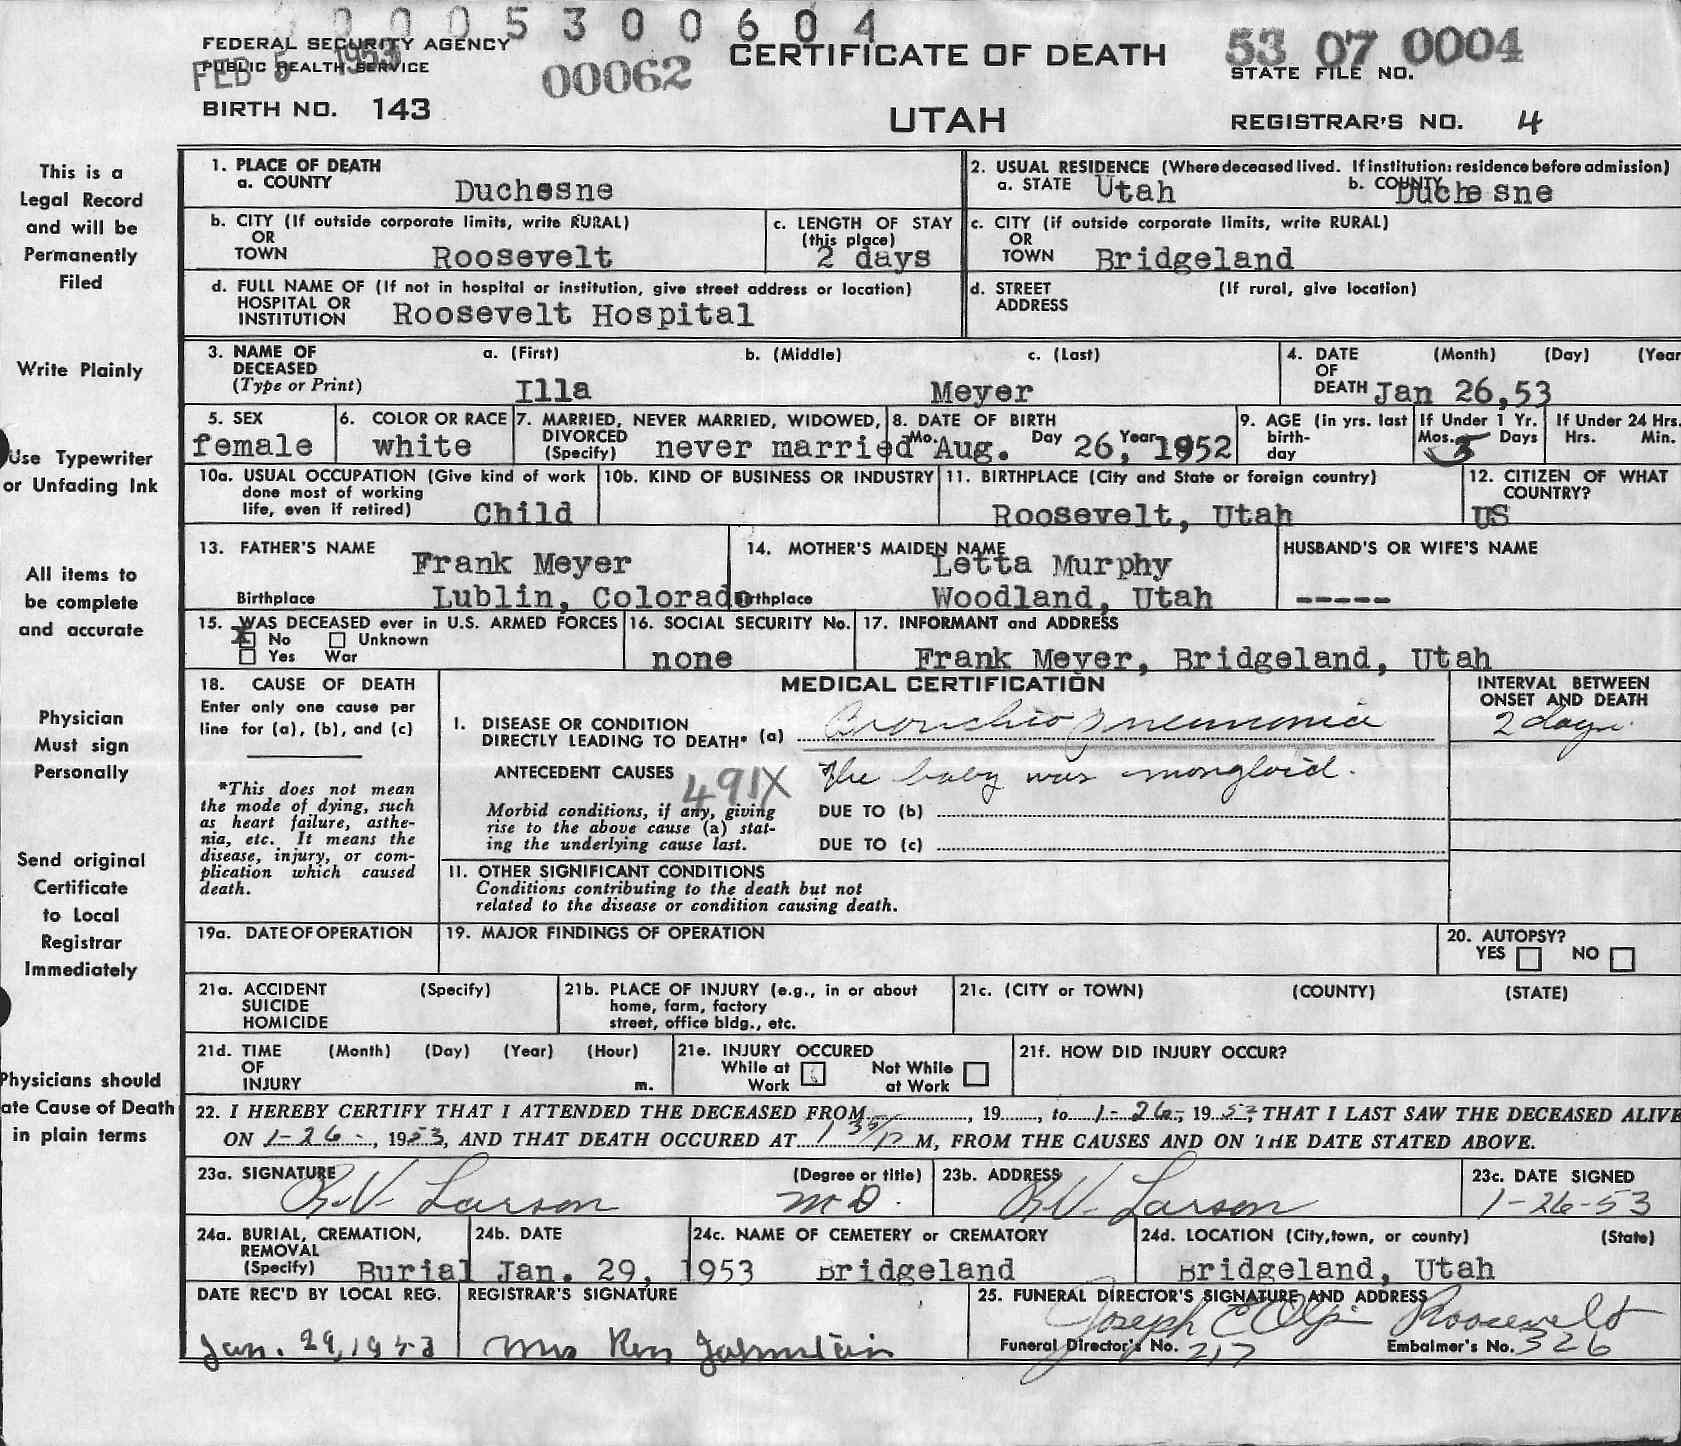 0005300604
FEDERAL SECURITY AGENCY
PUBLIC HEALTH SERVICE
FEB 5 1953
00062
CERTIFICATE OF DEATH
53 07 0004
STATE FILE NO.
BIRTH NO. 143
UTAH
REGISTRAR'S NO. 4
This is a
Legal Record
and will be
Permanently
Filed
Write Plainly
Use Typewriter
or Unfading Ink
All items to
be complete
and accurate
Physician
Must sign
Personally
Send original
Certificate
to Local
Registrar
Immediately
Physicians should
ate Cause of Death
in plain terms
1. PLACE OF DEATH
a. COUNTY Duchesne
2. USUAL RESIDENCE (Where deceased lived. If institution: residence before admission)
a. STATE Utah b. COUNTY Duchesne
b. CITY (If outside corporate limits, write RURAL)
OR
TOWN Roosevelt
c. LENGTH OF STAY
(this place)
2 days
c. CITY (if outside corporate limits, write RURAL)
OR
TOWN Bridgeland
d. FULL NAME OF (If not in hospital or institution, give street address or location)
HOSPITAL OR
INSTITUTION Roosevelt Hospital
d. STREET (If rural, give location)
ADDRESS
3. NAME OF DECEASED
(Type or Print)
a. (First) b. (Middle) c. (Last)
Illa Meyer
4. DATE OF DEATH (Month) (Day) (Year
Jan 26,53
5. SEX
female
6. COLOR OR RACE
white
7. MARRIED, NEVER MARRIED, WIDOWED,
DIVORCED
(Specify) never married
8. DATE OF BIRTH
Mo. Aug. Day 26, Year 1952
9. AGE (in yrs. last
birth-
day
If Under 1 Yr.
Mos. 5 Days
If Under 24 Hrs.
Hrs. Min.
10a. USUAL OCCUPATION (Give kind of work
done most of working
life, even if retired) Child
10b. KIND OF BUSINESS OR INDUSTRY
11. BIRTHPLACE (City and State or foreign country)
Roosevelt, Utah
12. CITIZEN OF WHAT
COUNTRY?
US
13. FATHER'S NAME
Frank Meyer
Birthplace Lublin, Colorado
14. MOTHER'S MAIDEN NAME
Letta Murphy
Birthplace Woodland, Utah
HUSBAND'S OR WIFE'S NAME
-----
15. WAS DECEASED ever in U.S. ARMED FORCES
X No Unknown
Yes War
16. SOCIAL SECURITY No.
none
17. INFORMANT and ADDRESS
Frank Meyer, Bridgeland, Utah
18. CAUSE OF DEATH
Enter only one cause per
line for (a), (b), and (c)
*This does not mean
the mode of dying, such
as heart failure, asthe-
nia, etc. It means the
disease, injury, or com-
plication which caused
death.
MEDICAL CERTIFICATION
INTERVAL BETWEEN
ONSET AND DEATH
I. DISEASE OR CONDITION
DIRECTLY LEADING TO DEATH* (a) Bronchio pneumonia
2 days
ANTECEDENT CAUSES
491X
The baby was mongloid.
Morbid conditions, if any, giving
rise to the above cause (a) stat-
ing the underlying cause last.
DUE TO (b)
DUE TO (c)
11. OTHER SIGNIFICANT CONDITIONS
Conditions contributing to the death but not
related to the disease or condition causing death.
19a. DATE OF OPERATION
19. MAJOR FINDINGS OF OPERATION
20. AUTOPSY?
YES NO
21a. ACCIDENT (Specify)
SUICIDE
HOMICIDE
21b. PLACE OF INJURY (e.g., in or about
home, farm, factory
street, office bldg., etc.
21c. (CITY or TOWN) (COUNTY) (STATE)
21d. TIME (Month) (Day) (Year) (Hour)
OF
INJURY m.
21e. INJURY OCCURED
While at Work
Not While at Work
21f. HOW DID INJURY OCCUR?
22. I HEREBY CERTIFY THAT I ATTENDED THE DECEASED FROM , 19 , to 1-26-, 1953, THAT I LAST SAW THE DECEASED ALIVE
ON 1-26-, 1953, AND THAT DEATH OCCURED AT 1 35/P M, FROM THE CAUSES AND ON THE DATE STATED ABOVE.
23a. SIGNATURE (Degree or title)
R.V. Larson M D.
23b. ADDRESS
R.V. Larson
23c. DATE SIGNED
1-26-53
24a. BURIAL, CREMATION,
REMOVAL
(Specify) Burial
24b. DATE
Jan. 29, 1953
24c. NAME OF CEMETERY or CREMATORY
Bridgeland
24d. LOCATION (City, town, or county) (State)
Bridgeland, Utah
DATE REC'D BY LOCAL REG.
Jan. 29, 1953
REGISTRAR'S SIGNATURE
Mrs
25. FUNERAL DIRECTOR'S SIGNATURE AND ADDRESS
Joseph E Olpin Roosevelt
Funeral Director's No. 217
Embalmer's No. 326